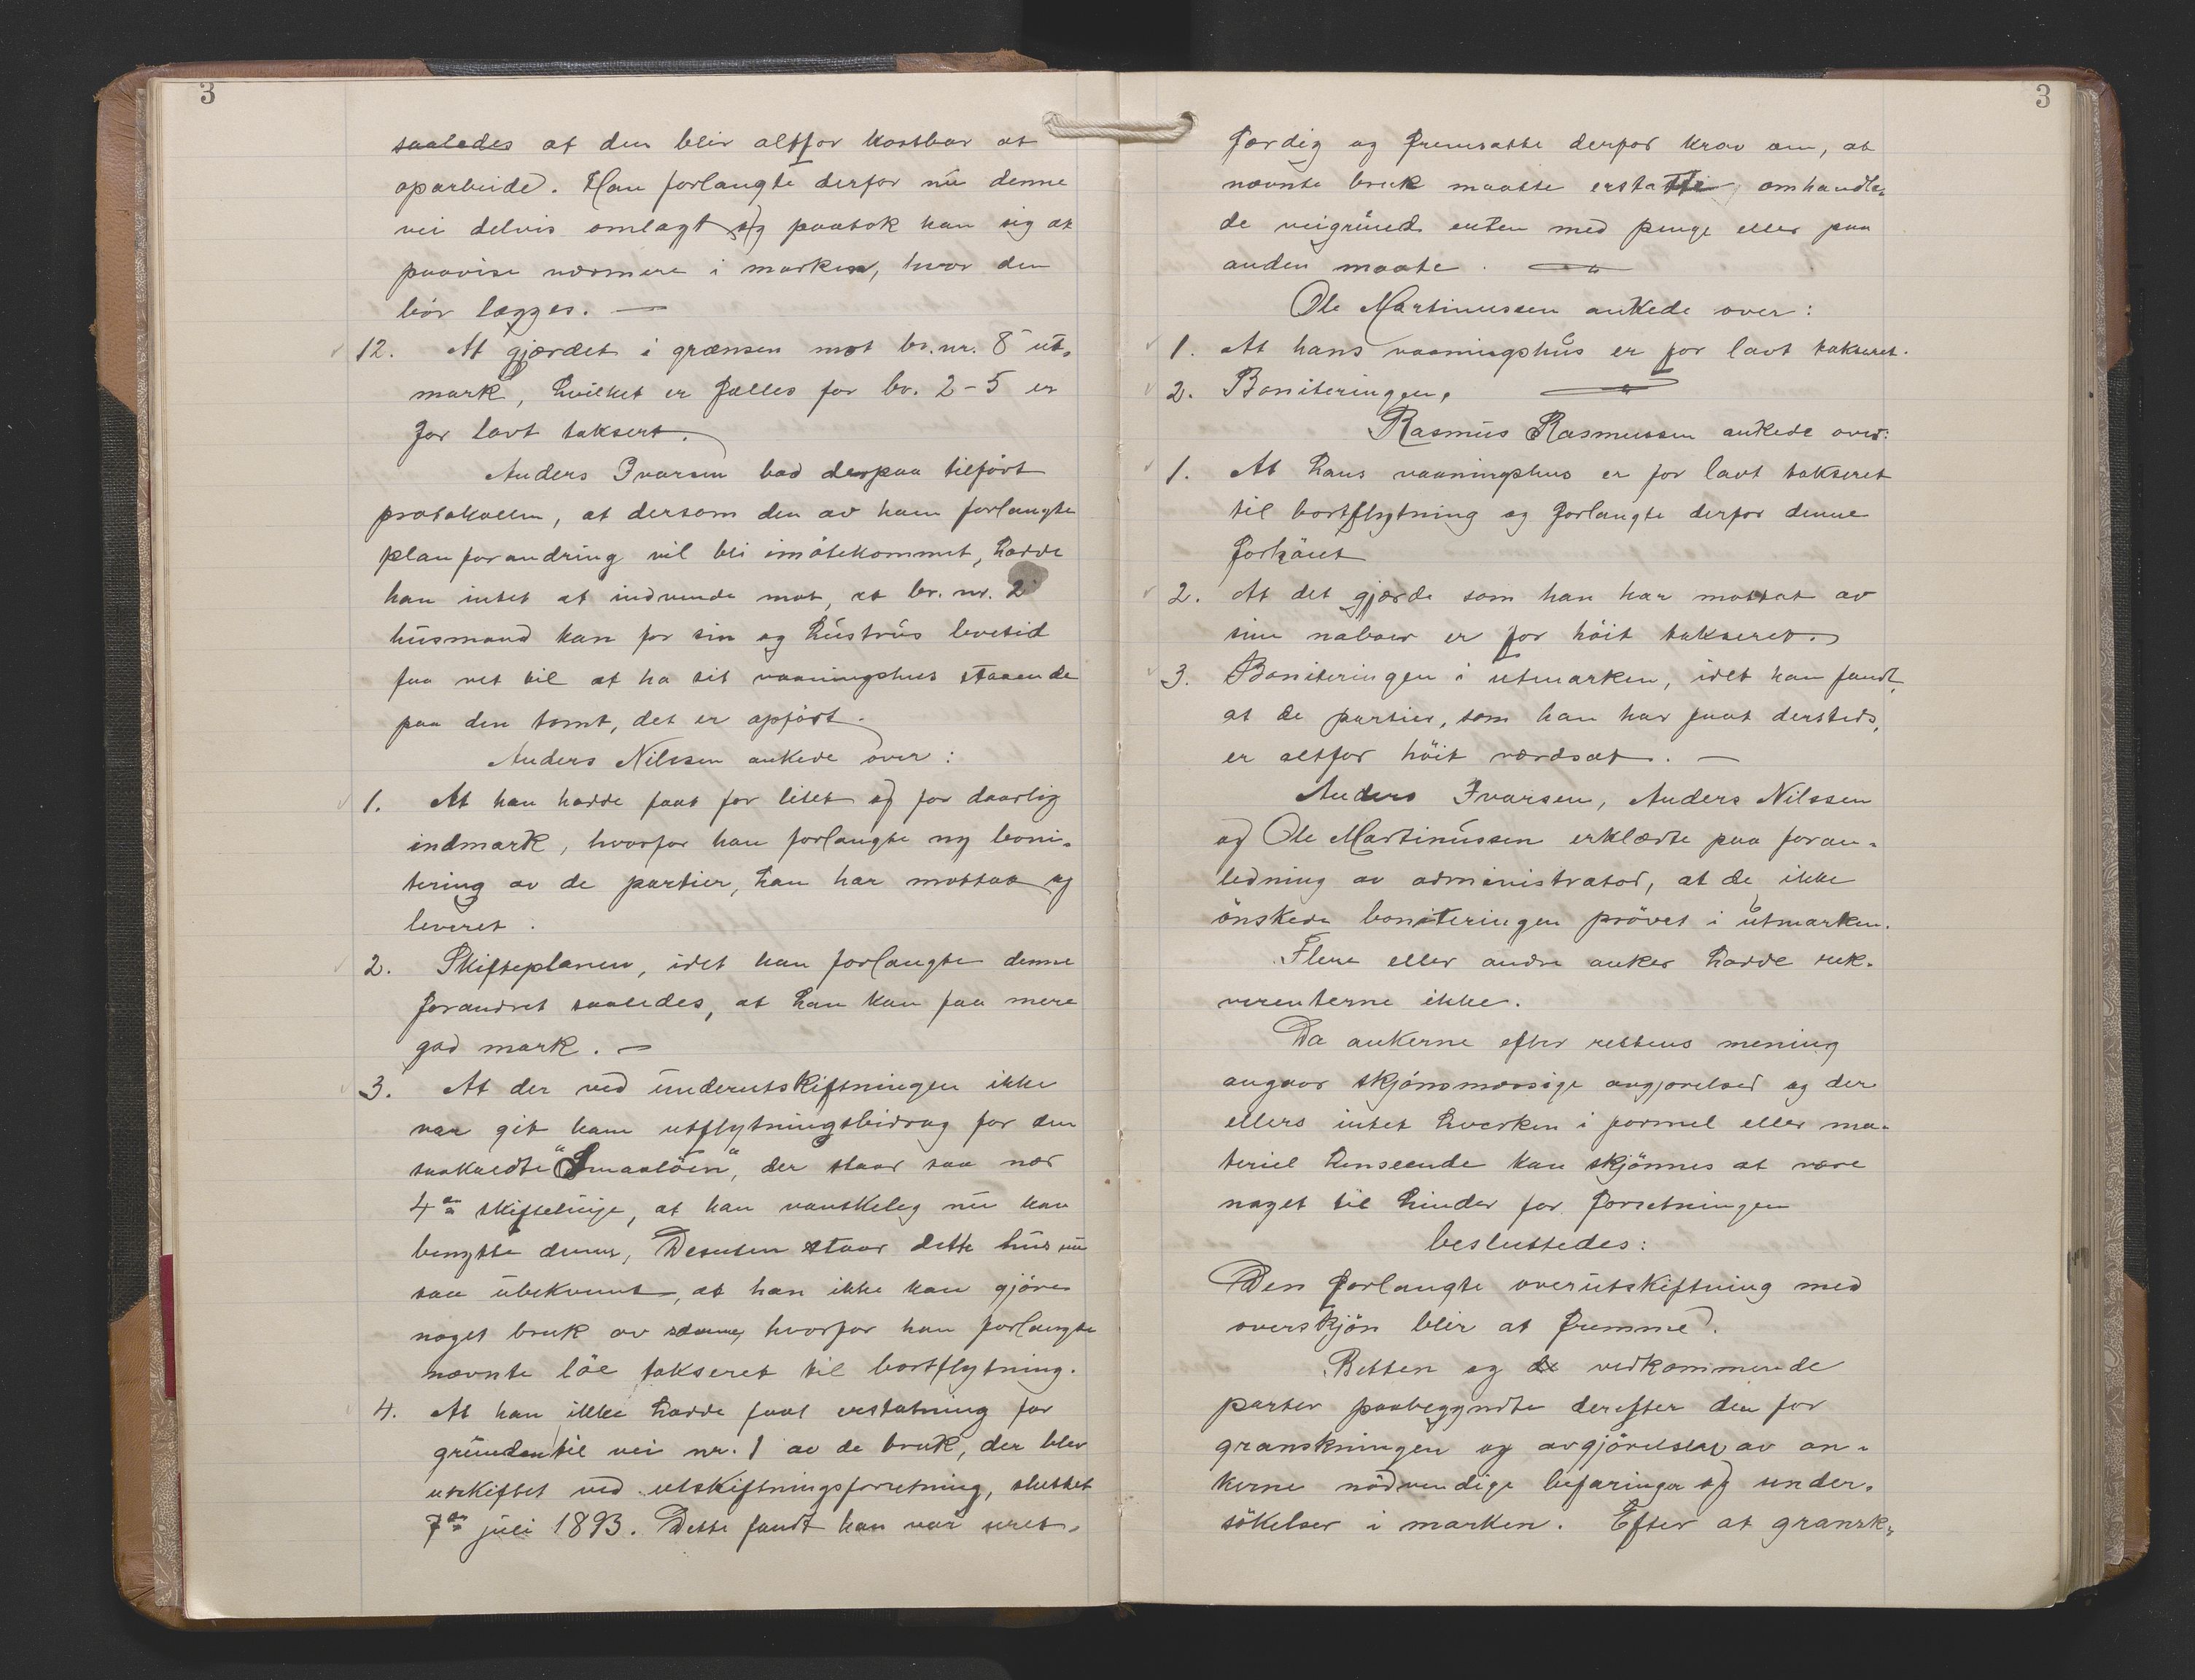 3
saaledes at den blir altfor kostbar at
oparbeide. Han forlangte derfor nu denne
vei delvis omlagt og paatok han sig at
paavise nærmere i marken, hvor den
bör lægges. —
12. At gjærdet i grænsen mot br. nr. 8 ut-
mark, hvilket er fælles for br. 2-5 er
for lavt taksert.
Anders Ivarsen bad derpaa tilfört
protokollen, at dersom den av ham forlangte
planforandring vil bli imötekommet, hadde
han intet at indvende mot, at br. nr. 2
husmand kan for sin og hustrus levetid
faa ret til at ha sit vaaningshus staaende
paa den tomt, det er opfört.
Anders Nilssen ankede over:
1. At han hadde faat for litet og for daarlig
indmark, hvorfor han forlangte ny boni-
tering av de partier, han har mottat og
leveret.
2. Skifteplanen, idet han forlangte denne
forandret saaledes, at han kan faa mere
god mark. —
3. At der ved underutskiftningen ikke
var git ham utflytningsbidrag for den
saakaldte "Smaalöen", der staar saa nær
4de skiftelinje, at han vanskelig nu kan
benytte denne, Desuten staar dette hus nu
saa ubekvemt, at han ikke kan gjöre
noget bruk av samme, hvorfor han forlangte
nævnte löe takseret til bortflytning.
4. At han ikke hadde faat erstatning for
grunden til vei nr. 1 av de bruk, der blev
utskiftet ved utskiftningsforretning, sluttet
7de juli 1893. Dette fandt han var uret-
3
færdig og fremsatte derfor krav om, at
nævnte bruk maatte erstatte omhandle-
de veigrund enten med penge eller paa
anden maate.
Ole Martinussen ankede over:
1. At hans vaaningshus er for lavt takseret.
2. Boniteringen.
Rasmus Rasmussen ankede over:
1. At hans vaaningshus er for lavt takseret
til bortflytning og forlangte derfor denne
forhöiet
2. At det gjærde som han har mottat av
sine naboer er for höit takseret.
3. Boniteringen i utmarken, idet han fandt,
at de partier, som han har faat dersteds,
er altfor höit værdsat. —
Anders Ivarsen, Anders Nilssen
og Ole Martinussen erklærte paa foran-
ledning av administrator, at de ikke
önskede boniteringen prövet i utmarken.
Flere eller andre anker hadde rek-
virenterne ikke.
Da ankerne efter rettens mening
angaar skjönsmæssige avgjørelser og der
ellers intet hverken i formel eller ma-
teriel henseende kan skjönnes at være
noget til hinder for forretningen
besluttedes:
Den forlangte overutskiftning med
overskjön blir at fremme.
Retten og de vedkommende
parter paabegyndte derefter den for
granskningen og avgjörelsen av an-
kerne nödvendige befaringer og under-
sökelser i marken. Efter at gransk-